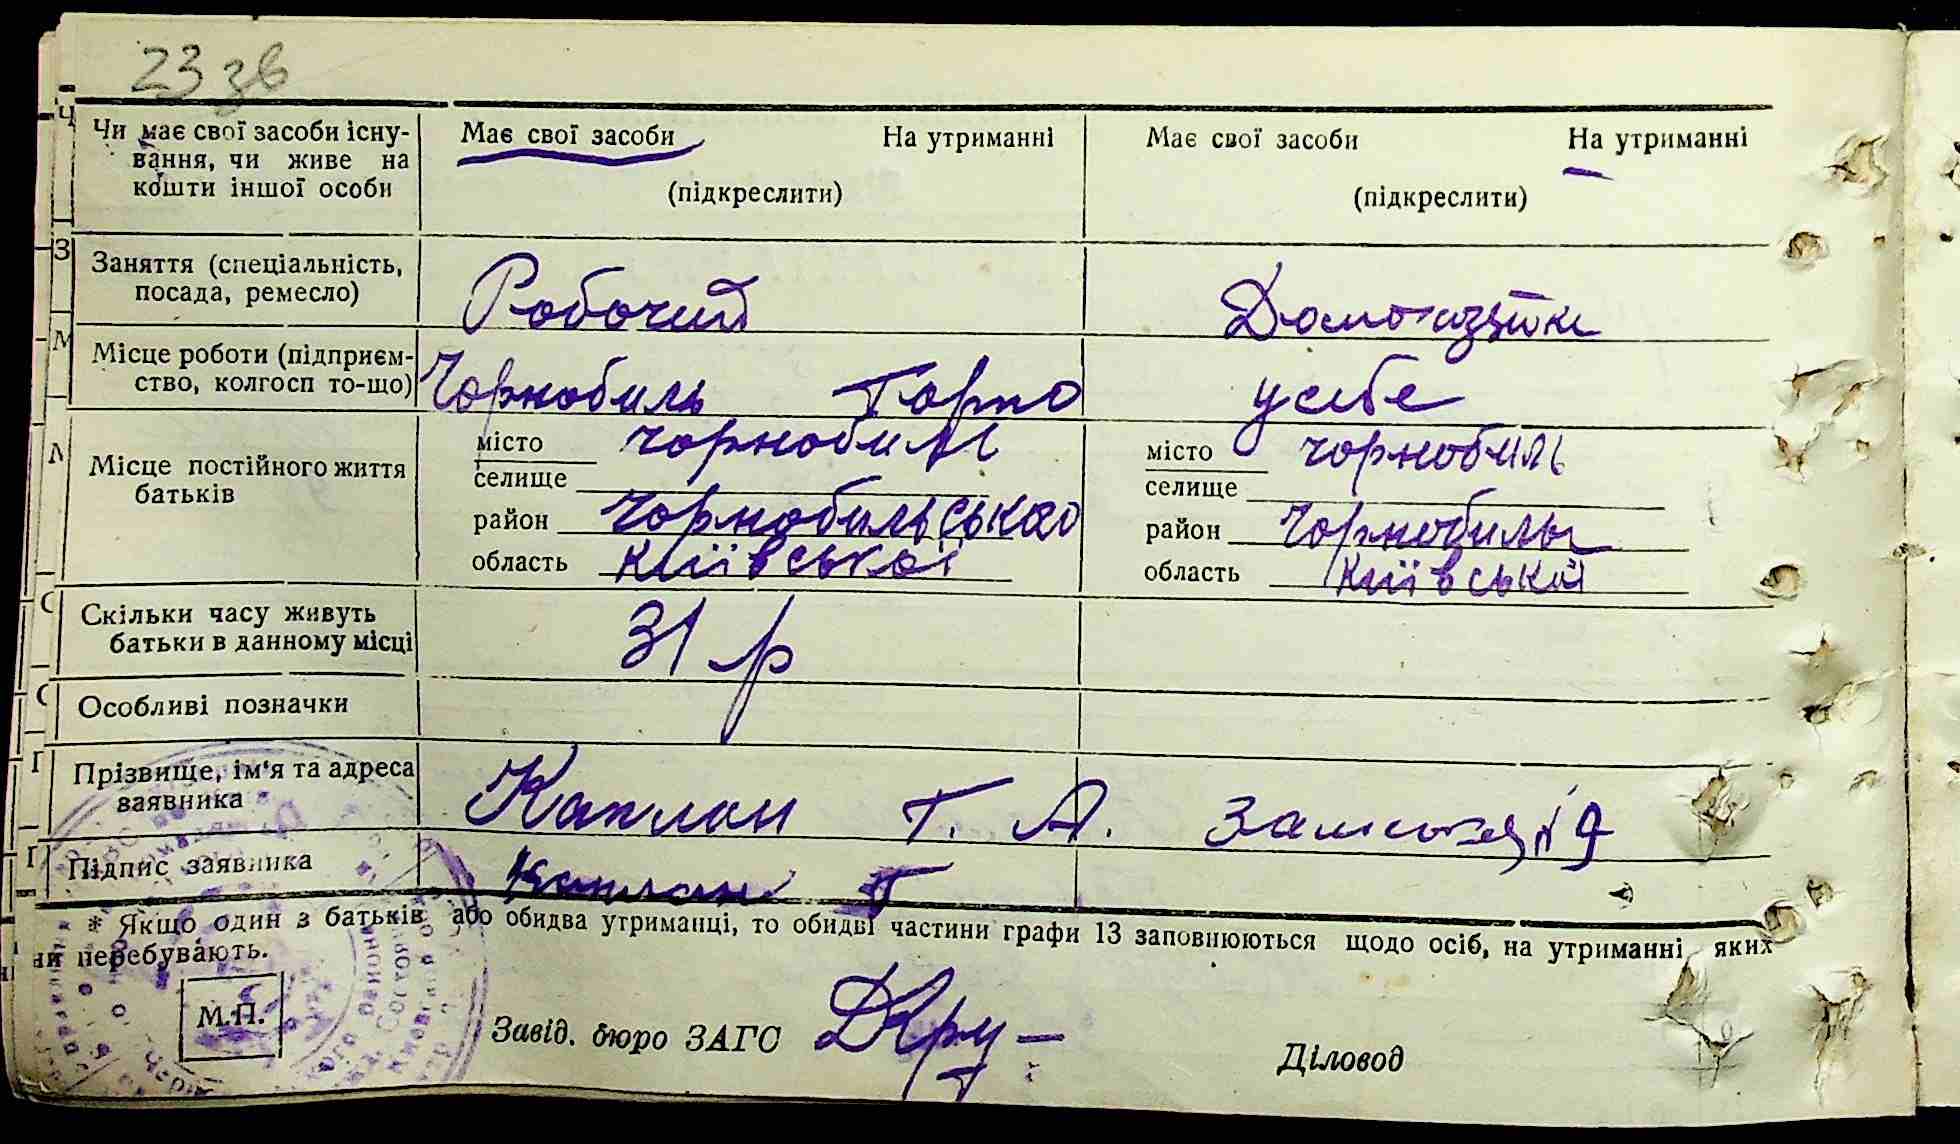 23 зв
Чи має свої засоби існу-
вання, чи живе на
кошти іншої особи
Має свої засоби На утриманні
(підкреслити)
Має свої засоби На утриманні
(підкреслити)
Заняття (спеціальність,
посада, ремесло)
Робочий
Домохазяйка
Місце роботи (підприєм-
ство, колгосп то-що)
Чорнобиль Торпо
у себе
Місце постійного життя
батьків
місто Чорнобиль
селище
район Чорнобильського
область Київської
місто Чорнобиль
селище
район Чорнобильс
область Київської
Скільки часу живуть
батьки в данному місці
31 р
Особливі позначки
Прізвище, ім'я та адреса
заявника
Каплан Г. А.
Підпис заявника
Каплан Г
* Якщо один з батьків або обидва утриманці, то обидві частини графи 13 заповнюються щодо осіб, на утриманні яких
перебувають.
М.П.
Завід. бюро ЗАГС
Діловод